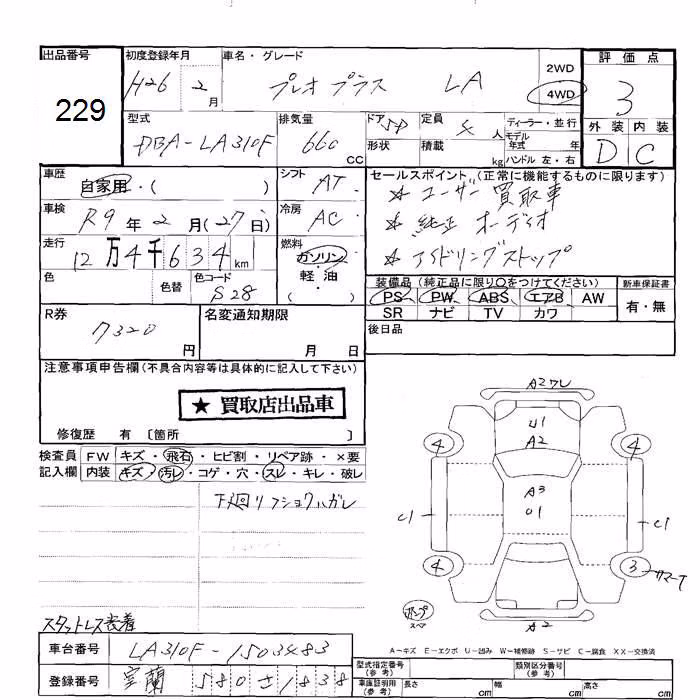 出品番号
229
初度登録年月
H26 2月
車名・グレード
プレオ プラス LA
2WD
4WD
評価点
3
外装 内装
D C
型式
DBA-LA310F
排気量
660 CC
ドア 5D
形状
定員 4人
積載 kg
ディーラー・並行
モデル年式 年
ハンドル 左・右
車歴
自家用・( )
シフト AT
車検
R9年2月(27日)
冷房 AC
走行
12万4千634km
燃料
ガソリン
軽・油
( )
色
色替
色コード
S28
セールスポイント(正常に機能するものに限ります)
★ ユーザー買取車
★ 純正オーディオ
★ アイドリングストップ
装備品(純正品に限り○をつけてください)
PS PW ABS エアB AW
SR ナビ TV カワ
新車保証書
有・無
後日品
R券
7320円
名変通知期限
月 日
注意事項申告欄(不具合内容等は具体的に記入して下さい)
★ 買取店出品車
修復歴 有〔箇所 〕
検査員記入欄
FW キズ・飛石・ヒビ割・リペア跡・×要
内装 キズ・汚レ・コゲ・穴・スレ・キレ・破レ
下廻リフショクハガレ
スタットレス装着
A2ワレ
U1
A2
A3
U1
A2
4
4
4
3
C1
C1
サマーT
ポンプ
スペア
A-キズ E-エクボ U-凹み W-補修跡 S-サビ C-腐食 XX-交換済
車台番号
LA310F-1503483
登録番号
室蘭 580 さ 1838
型式指定番号(参考)
類別区分番号(参考)
車庫証明用(参考)
長さ cm
幅 cm
高さ cm